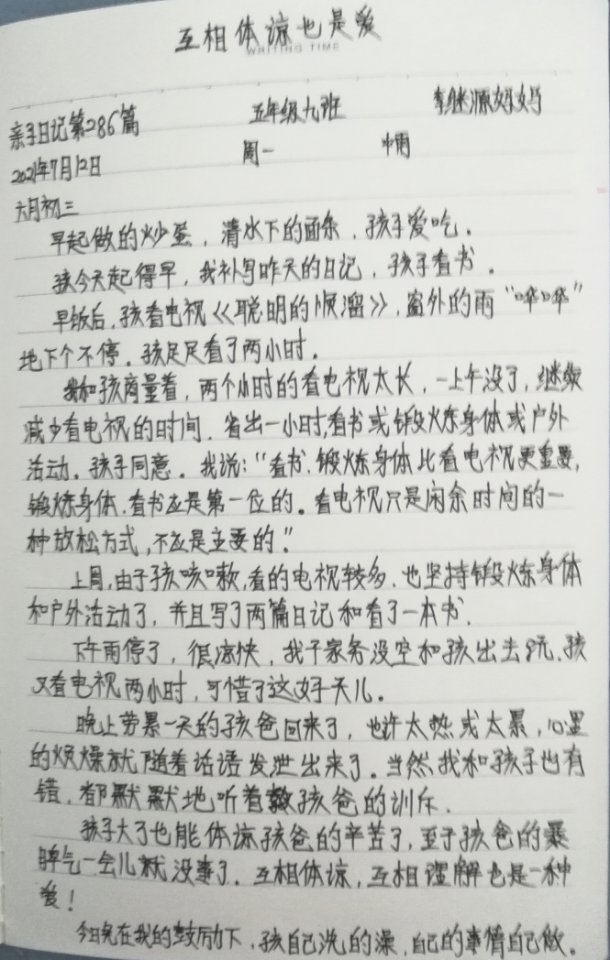 互相体谅也是爱
WRITING TIME
亲子日记第286篇 五年级九班 李继源妈妈
2021年7月12日 周一 中雨
六月初三
早起做的炒蛋，清水下的面条，孩子爱吃。
孩今天起得早，我补写昨天的日记，孩子看书。
早饭后，孩看电视《聪明的顺溜》，窗外的雨“哗哗”
地下个不停。孩足足看了两小时。
我和孩商量着，两个小时的看电视太长，一上午没了，继续
减少看电视的时间，省出一小时，看书或锻炼身体或户外
活动。孩子同意。我说：“看书，锻炼身体比看电视更重要，
锻炼身体，看书应是第一位的。看电视只是闲余时间的一
种放松方式，不应是主要的。”
上月，由于孩咳嗽，看的电视较多，也坚持锻炼身体
和户外活动了，并且写了两篇日记和看了一本书。
下午雨停了，很凉快，我干家务没空和孩出去玩，孩
又看电视两小时，可惜了这好天儿。
晚上劳累一天的孩爸回来了，也许太热或太累，心里
的烦燥就随着话语发泄出来了。当然，我和孩子也有
错，都默默地听着孩爸的训斥。
孩子大了也能体谅孩爸的辛苦了，至于孩爸的暴
脾气一会儿就没事了。互相体谅，互相理解也是一种
爱！
今日晚在我的鼓励下，孩自己洗的澡，自己的事情自己做。